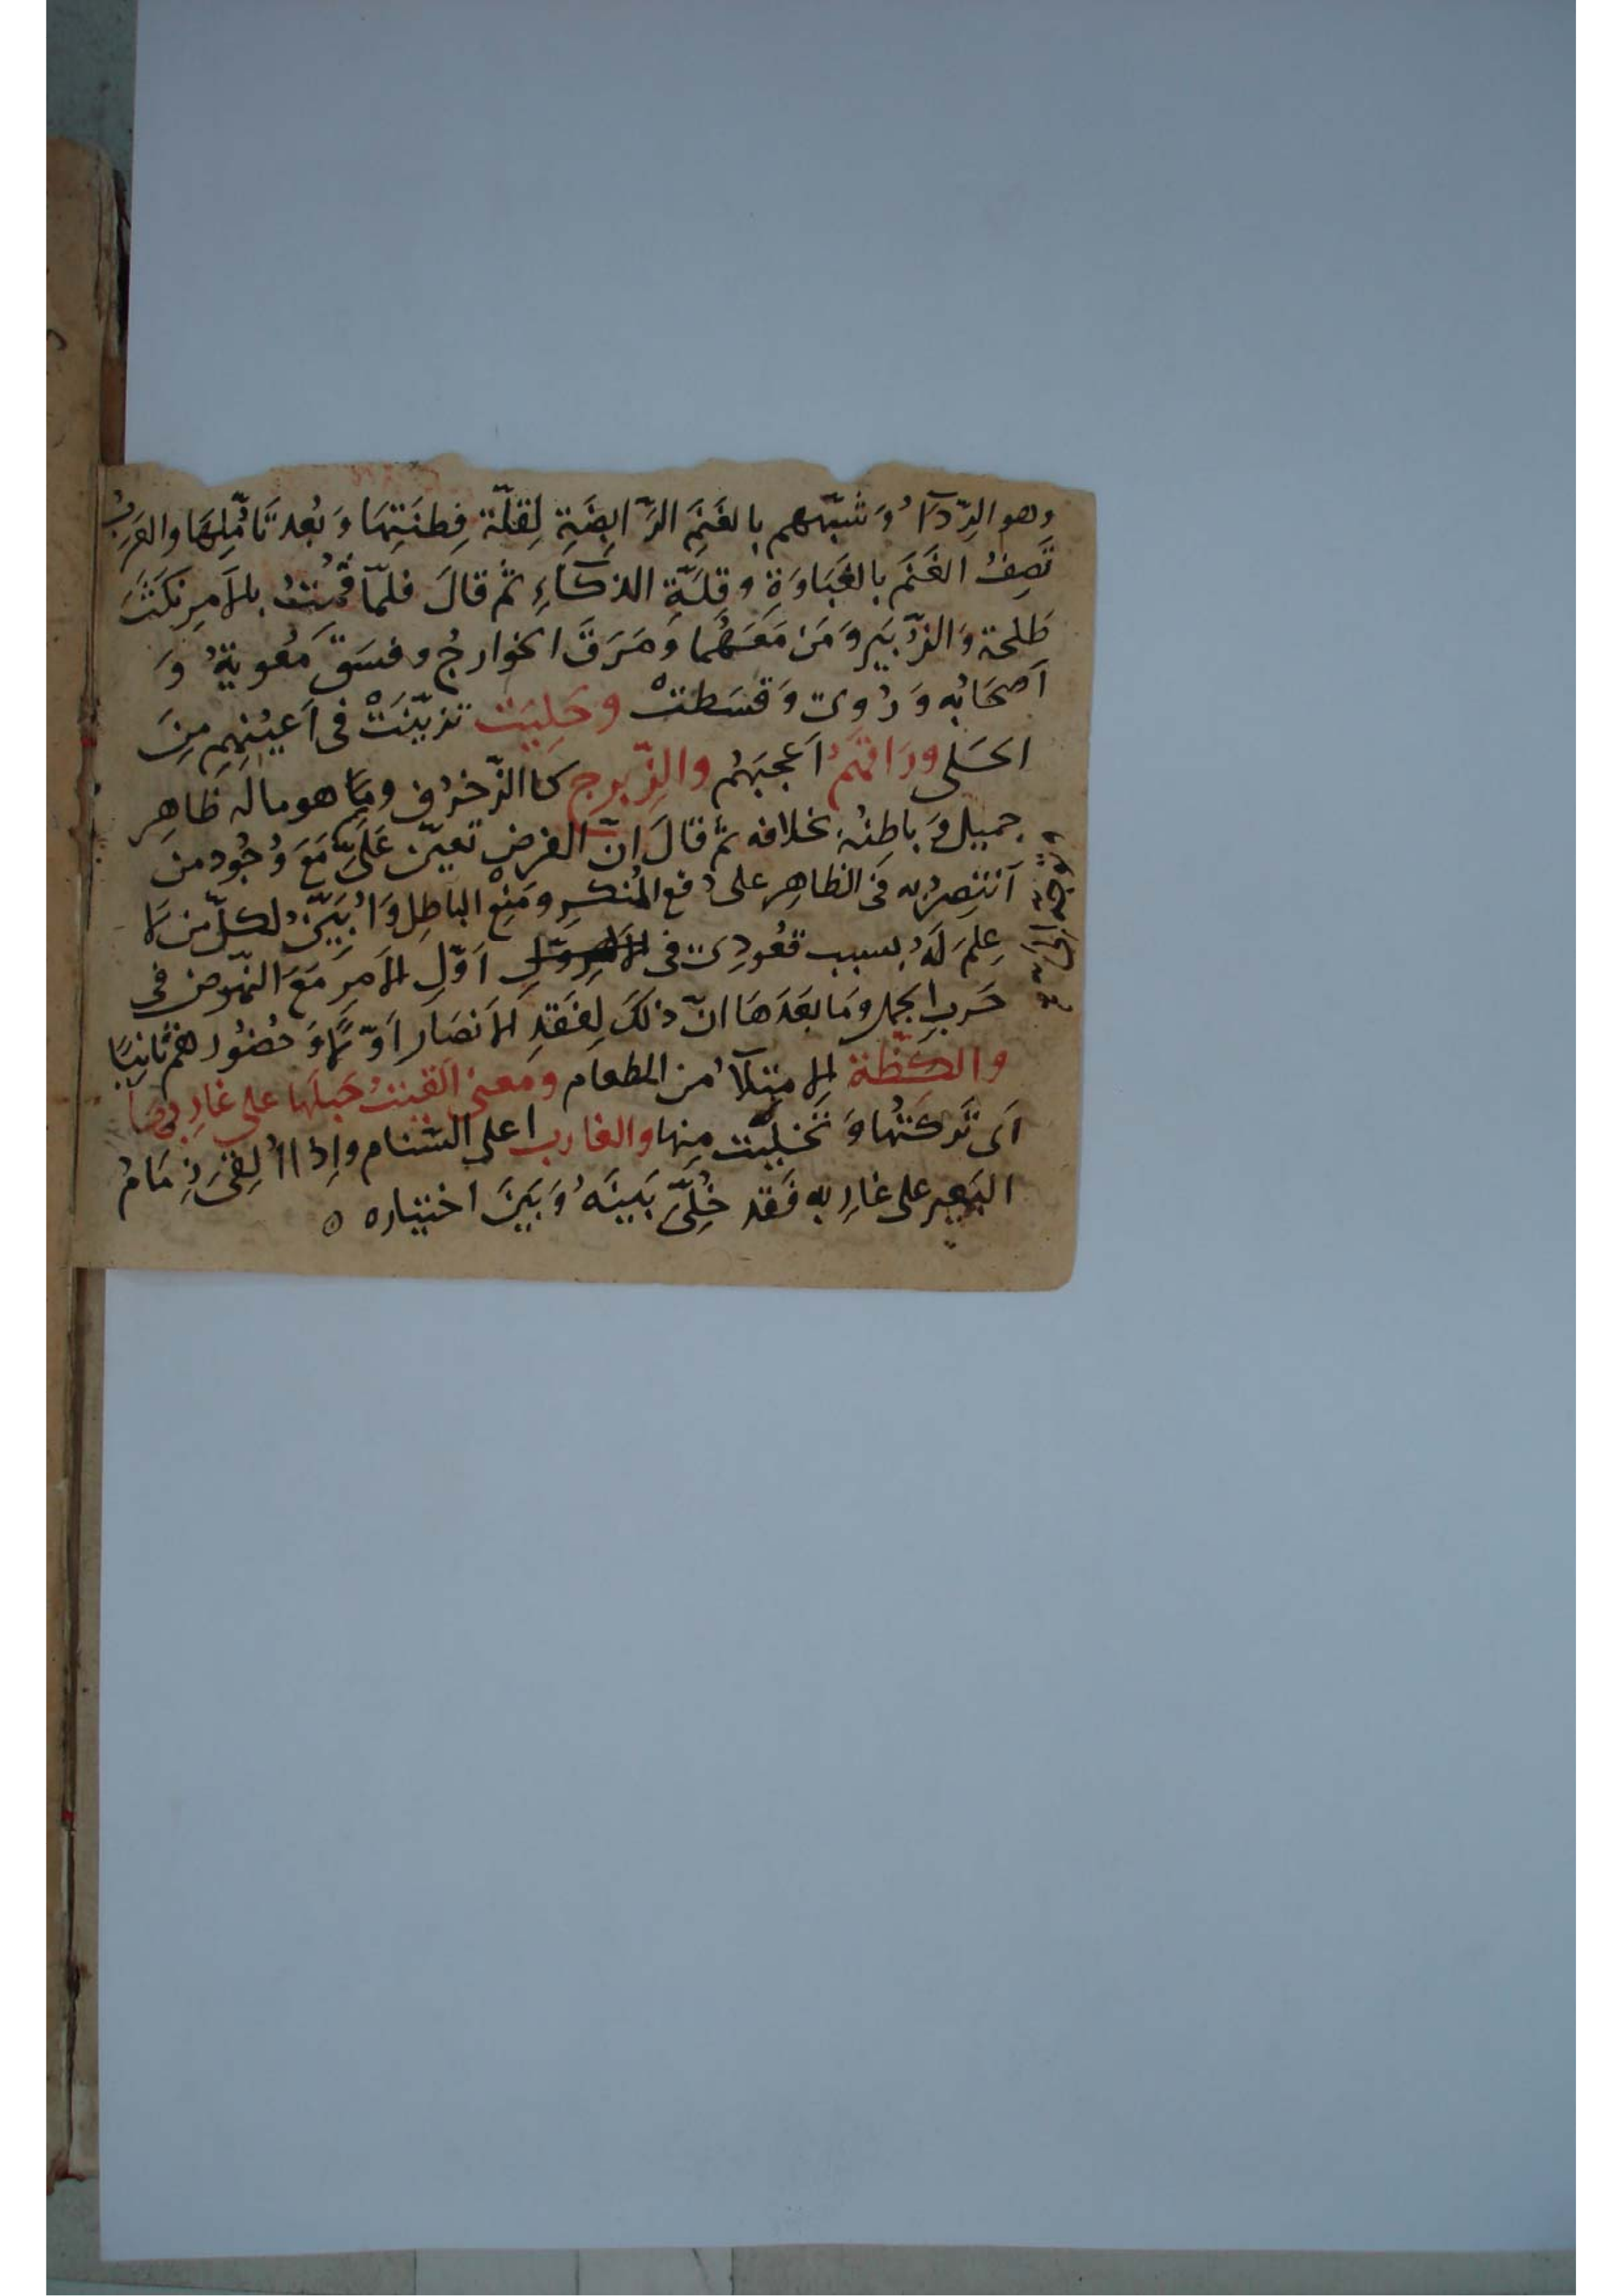 وهو الرِّدآءُ وَشبّههم بالغَنَمِ الرَّابِضَةِ لِقلّة فِطنَتِهَا وَبُعد تَأمُّلِهَا والعَرَبُ
تَصِفُ الغَنَم بالغَبَاوَةِ وقِلَّةِ الذكآءِ ثم قالَ فلمّا قمْتُ بالأمرِ نكثَتْ
طَلحة وَالزُّبَير وَمَن مَعَهُمَا وَمَرَقَ الخوارجُ وفسَقَ مَعُويةُ وَ
اَصحَابُه وَرُوِىَ وَقسَطتْ وحَلِيَت تزيّنَتْ فى اَعيُنِهِم مِنَ
الحَلى ورَاقَهُم اَعجَبَهُم والزِّبرج كالزّخرُف وهو ماله ظَاهِر
جميل وَبَاطِنُهُ بخلافه ثم قالَ اِنّ الفرض تعيّن عَلَىَّ مَعَ وُجُود من
اَنتَصِرُ به فى الظاهِر على دَفع المُنكرِ ومَنعِ الباطِل وَاُبَيّن لكلّ من لا
عِلمَ لَهُ بسبب قعُودِى فى اَوّلِ الأمرِ مَعَ النّهوض فى
حَربِ الجمل وَمَا بعَدَهَا انّ ذلكَ لِفَقدِ الأنصَار اَوّلًا وَحُضُورهم ثانِيًا
والكظّة الإمتلآءُ من الطعَام ومعنى القيتُ حَبلَها على غارِبِهَا
اَى تَركتُهَا وَتخليّت مِنها والغارب اعلى السّنام واِذا اُلقىَ زِمَامُ
البَعِير على غارِبه فَقد خُلِّىَ بَينَهُ وَبَينَ اختياره ٥